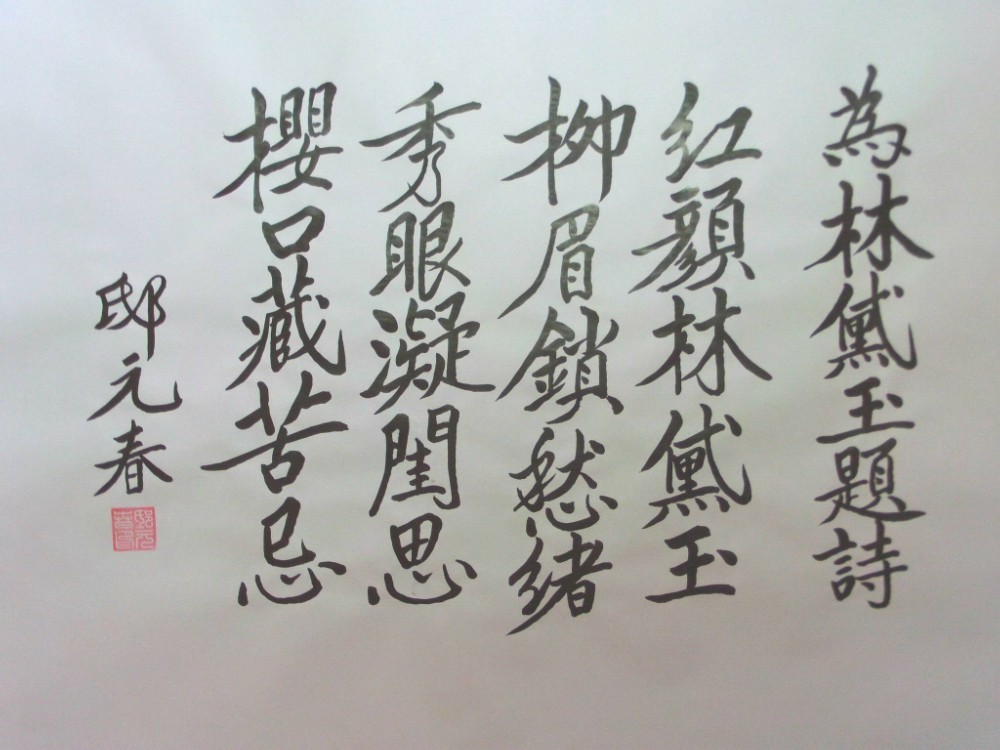 為林黛玉題詩
红顔林黛玉
柳眉鎖愁緒
秀眼凝閨思
櫻口藏苦忌
邸元春